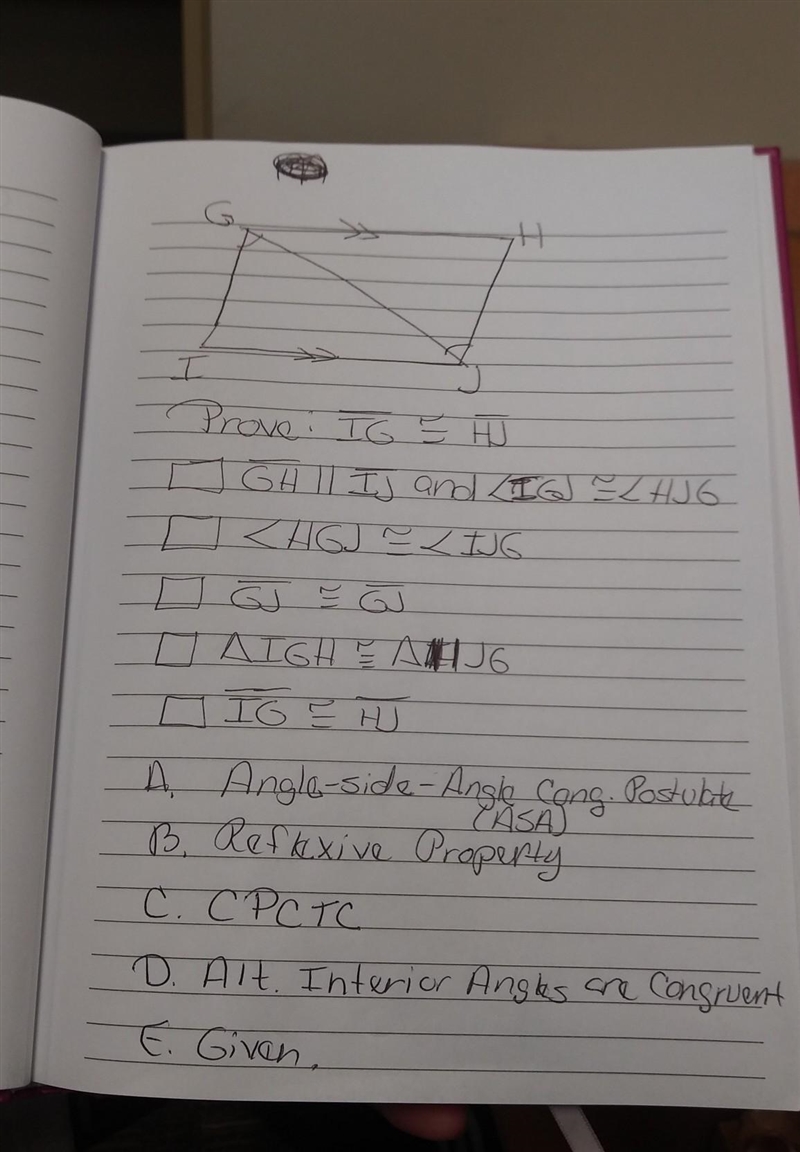 G H
I J
Prove: IG ≅ HJ
GH || IJ and <IGJ ≅ <HJG
<HGJ ≅ <IJG
GJ ≅ GJ
△IGH ≅ △HJG
IG ≅ HJ
A. Angle-side-Angle Cong. Postulate
(ASA)
B. Reflexive Property
C. CPCTC
D. Alt. Interior Angles are Congruent
E. Given.